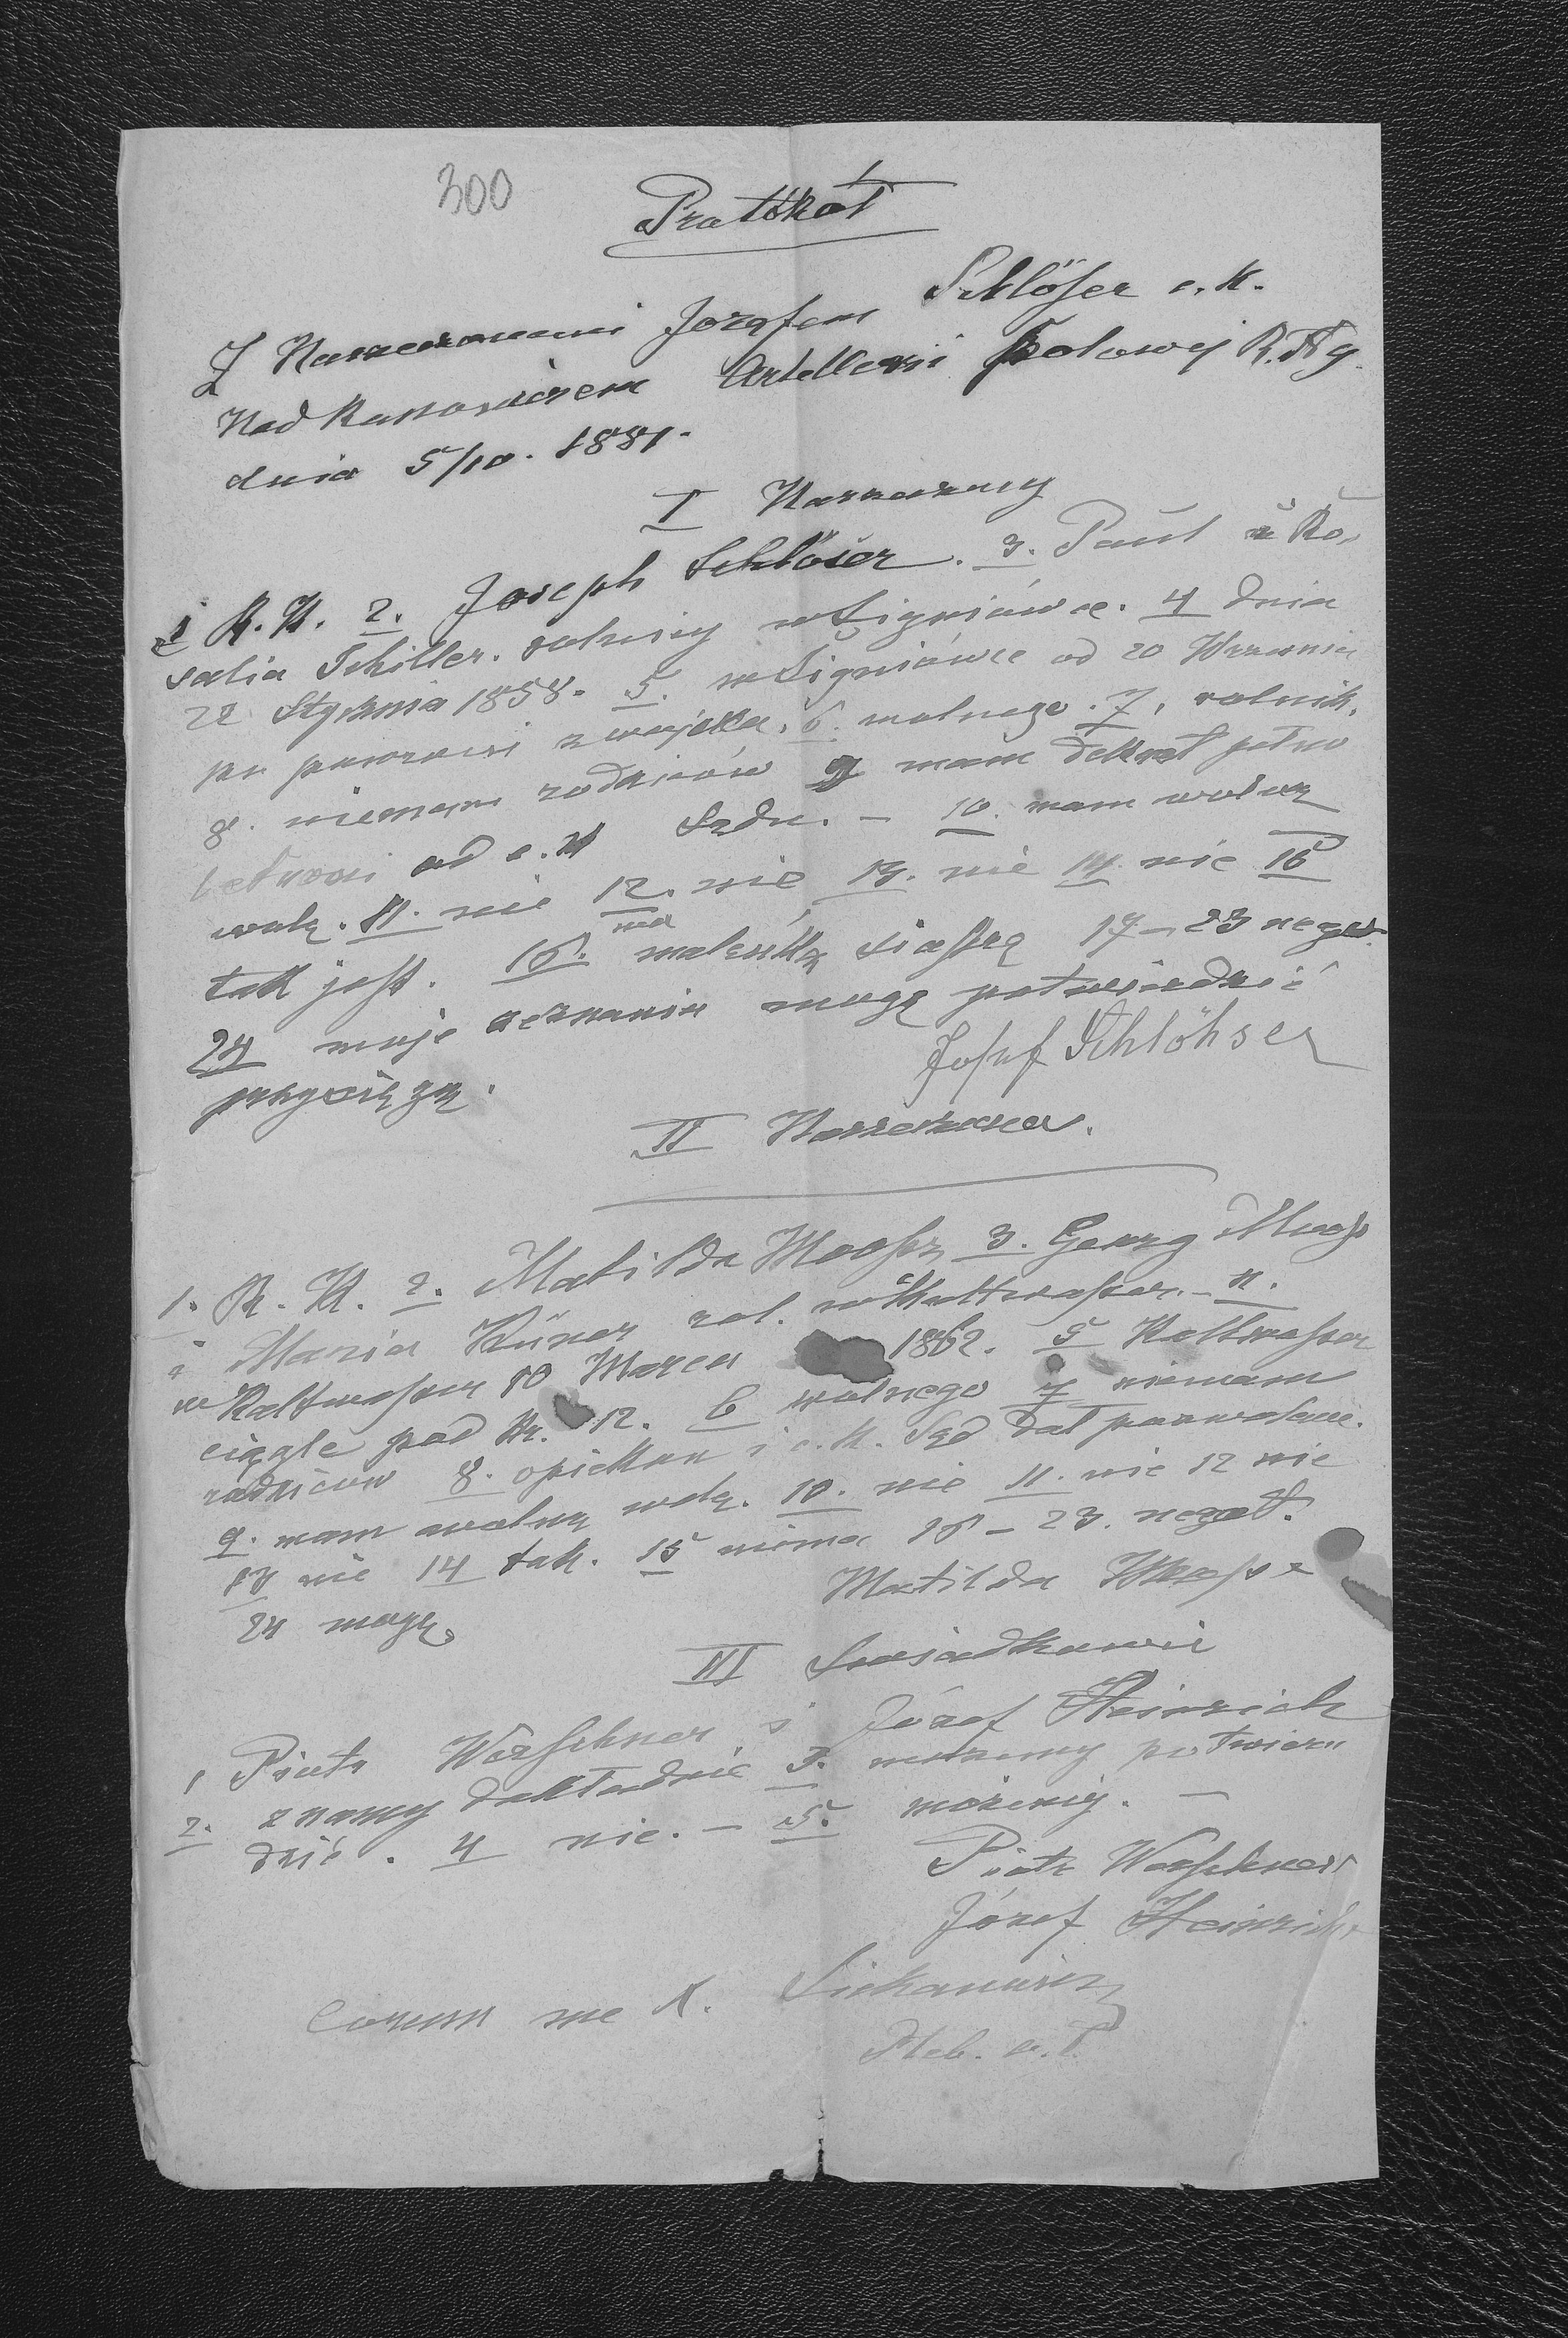 300
Protokół
Z Narzeczonemi Jozefem Schlößer c. k.
Nad Kanonierem Artellerii Polowej R. Ng.
dnia 5/10. 1881.
I Narzeczony
1 R. K. 2. Joseph Schlößer. 3. Paul i Ro-
salia Schiller. rolnicy w Ligniówce. 4 dnia
22 Stycznia 1858. 5. w Ligniówce od 20 Września
po powrocie z wojska. 6. wolnego. 7. rolnik.
8. niemam rodziców 9 mam dekret pełno
letności od c. k Sądu. — 10. mam wolną
wolę. 11. nie 12. nie 13. nie 14. nie 15
tak jest. 16. ma maleńką siostrę 17 — 23 negat.
24 moje zeznania mogę potwierdzić
przysięgą.
Josef Schlöhser
II Narzeczona.
1. R. K. 2. Matilda Moosz 3. Georg Moos
i Maria Küner rol. w Kaltwasser. — 4.
w Kaltwasser 10 Marca 1862. 5 Kaltwasser
ciągle pod Nr. 12. 6 wolnego 7 niemam
rodziców 8. opiekun i c. k. Sąd dał pozwolenie.
9. mam wolną wolę. 10. nie 11. nie 12 nie
13 nie 14 tak. 15 nima 16 — 23. negat.
24 mogę
Matilda
III Swiadkowie
1 Piotr Worschner i Józef Heinrich
2. znamy dokładnie 3. możemy potwier
dzić. 4 nie. — 5. możemy. —
Piotr Worschner
Józef Heinrich
Coram me
Pleb. o. ł.